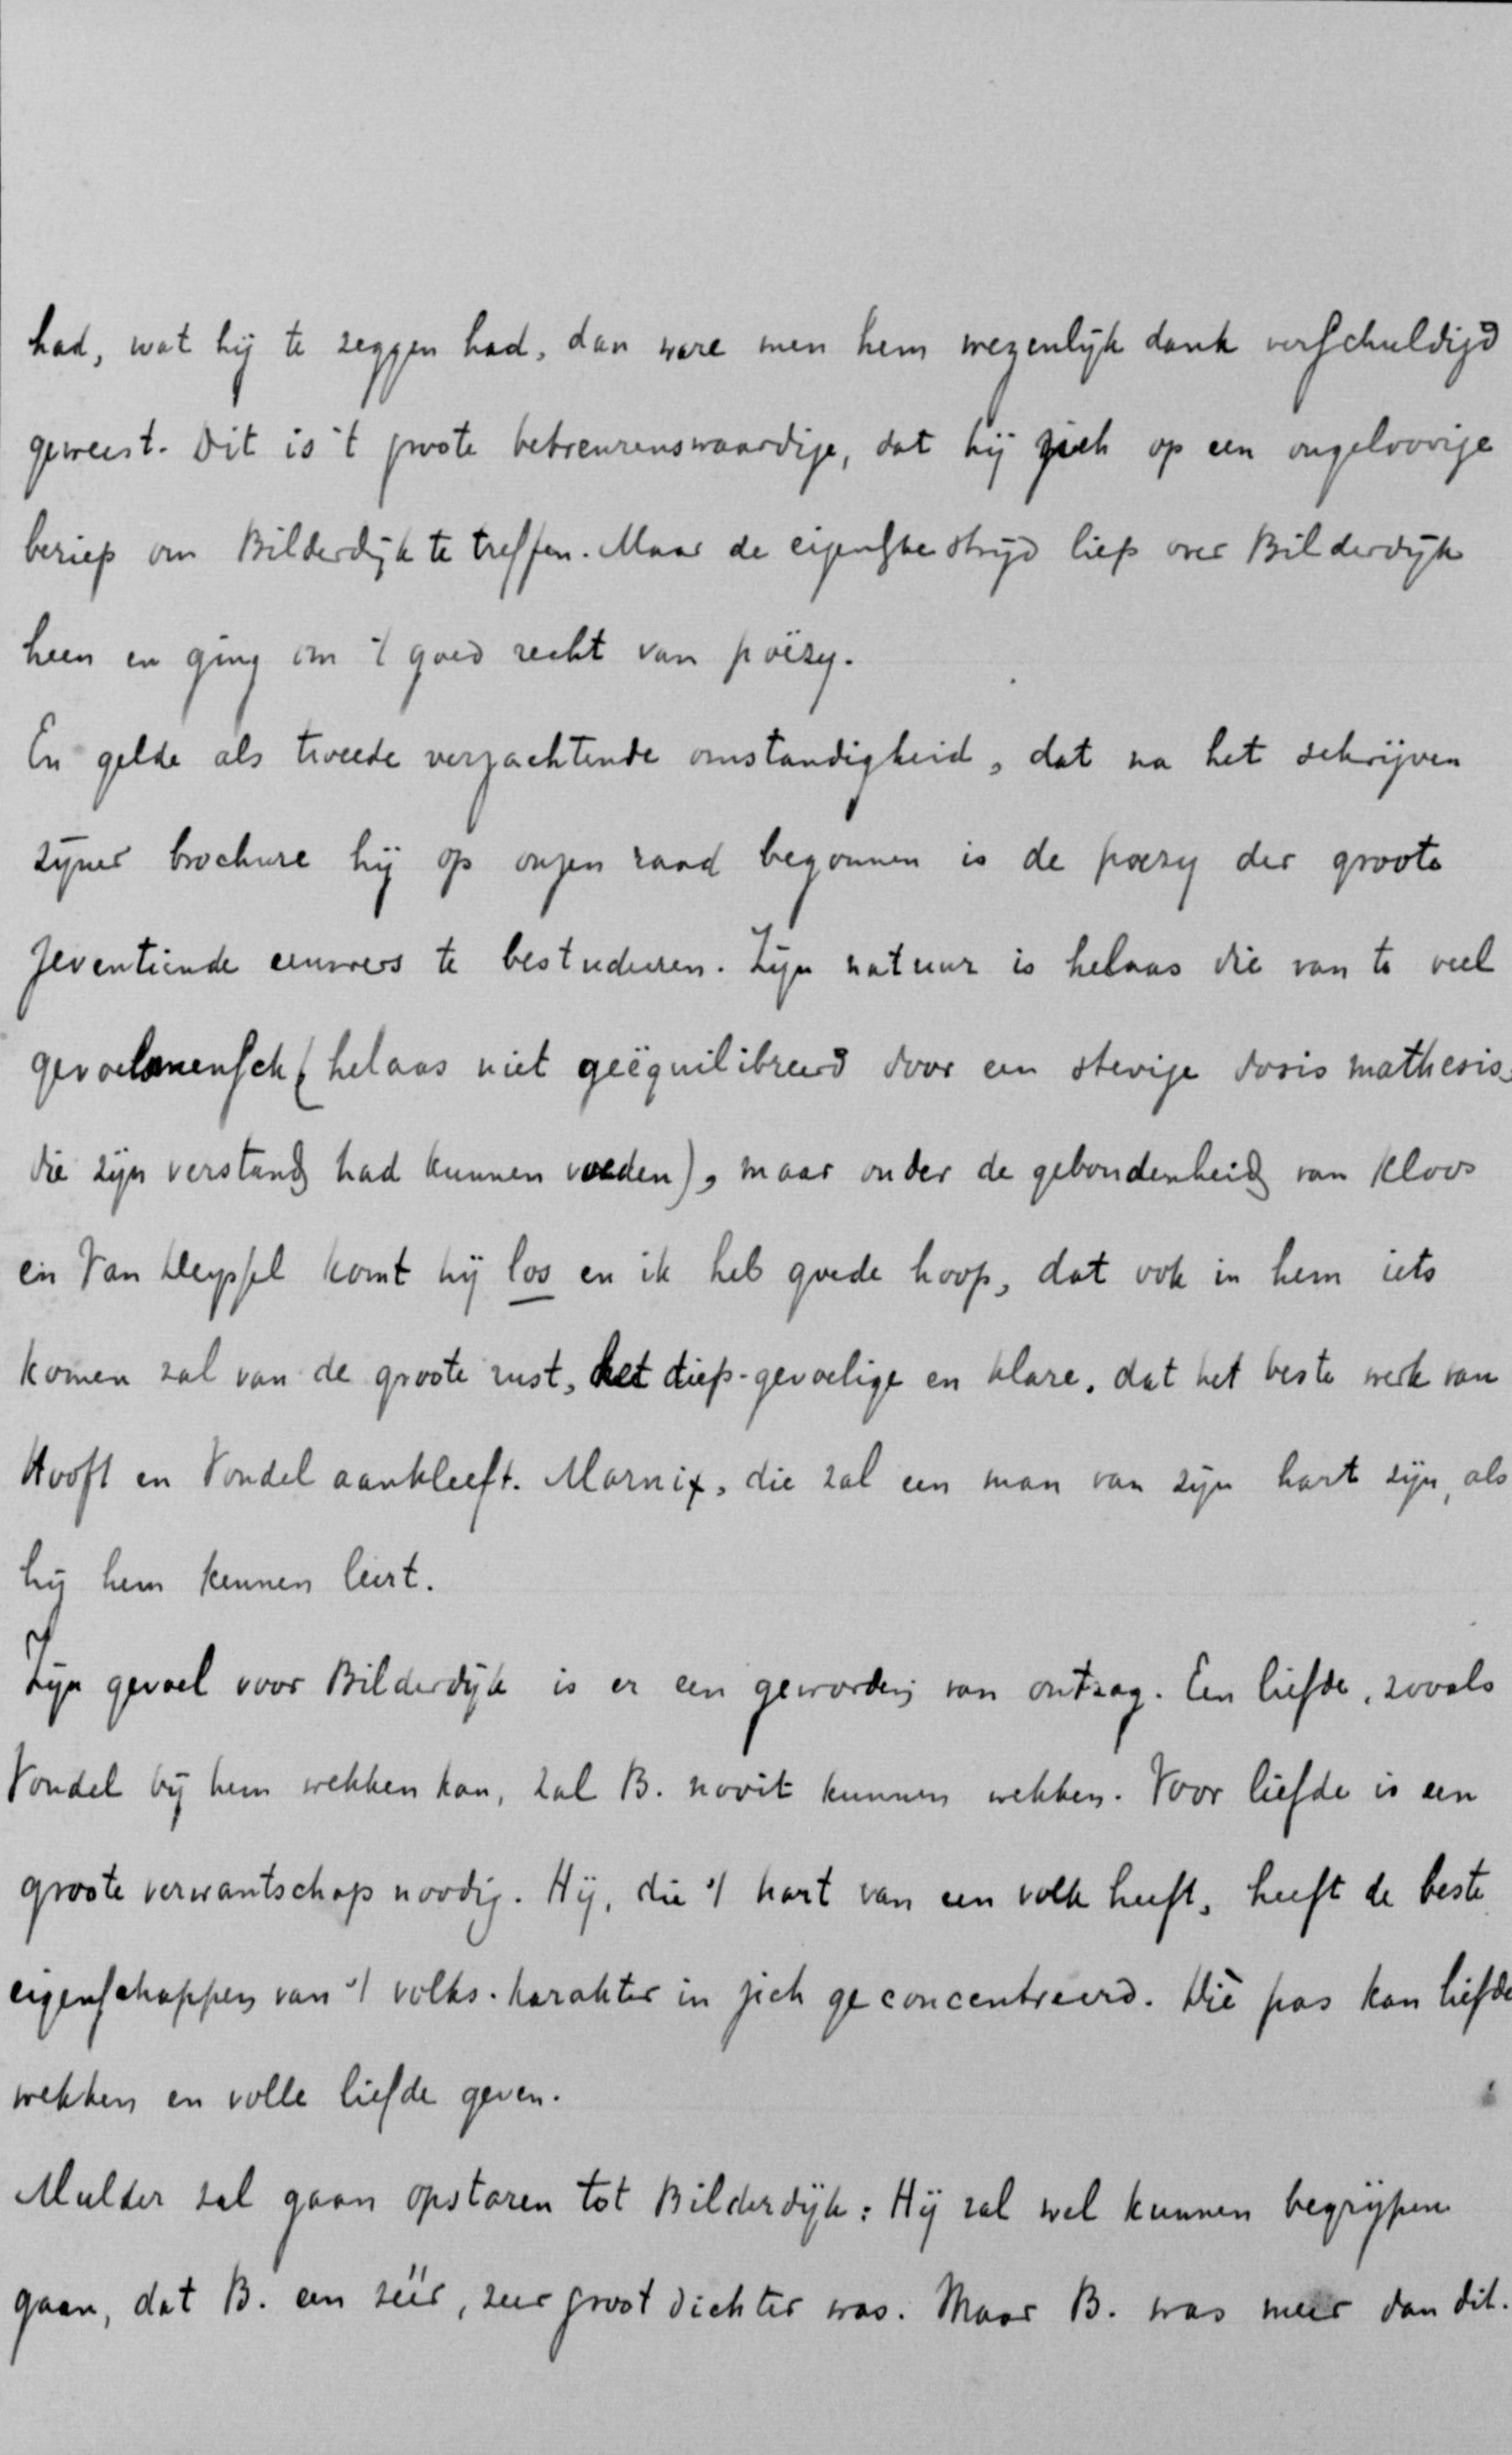 had, wat hij te zeggen had, dan ware men hem wezenlijk dank verschuldigd
geweest. Dit is 't groote betreurenswaardige, dat hij zich op een ongeloovige
beriep om Bilderdijk te treffen. Maar de eigenlijke strijd liep over Bilderdijk
heen en ging om 't goed recht van poëzy.
En gelde als tweede verzachtende omstandigheid, dat na het schrijven
zijner brochure hij op onzen raad begonnen is de poezy der groote
zeventiende eeuwers te bestudeeren. Zijn natuur is helaas die van te veel
gevoelsmensch (helaas niet geëquilibreerd door een stevige dosis mathesis,
die zijn verstand had kunnen voeden), maar onder de gebondenheid van Kloos
en Van Deyssel komt hij los en ik heb goede hoop, dat ook in hem iets
komen zal van de groote rust, het diep-gevoelige en klare, dat het beste werk van
Hooft en Vondel aankleeft. Marnix, die zal een man van zijn hart zijn, als
hij hem kennen leert.
Zijn gevoel voor Bilderdijk is er een geworden van ontzag. Een liefde, zooals
Vondel bij hem wekken kan, zal B. nooit kunnen wekken. Voor liefde is een
groote verwantschap noodig. Hij, die 't hart van een volk heeft, heeft de beste
eigenschappen van 't volks-karakter in zich geconcentreerd. Diè pas kan liefde
wekken en volle liefde geven.
Mulder zal gaan opstaren tot Bilderdijk: Hij zal wel kunnen begrijpen
gaan, dat B. een zéér, zeer groot dichter was. Maar B. was meer dan dit.